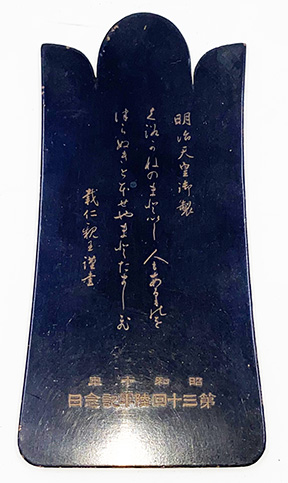 明治天皇御製
くろかねのまといし人もあるものを
つらぬきとほせやまとたましひ
載仁親王謹書
昭和十年
第三十回陸軍記念日